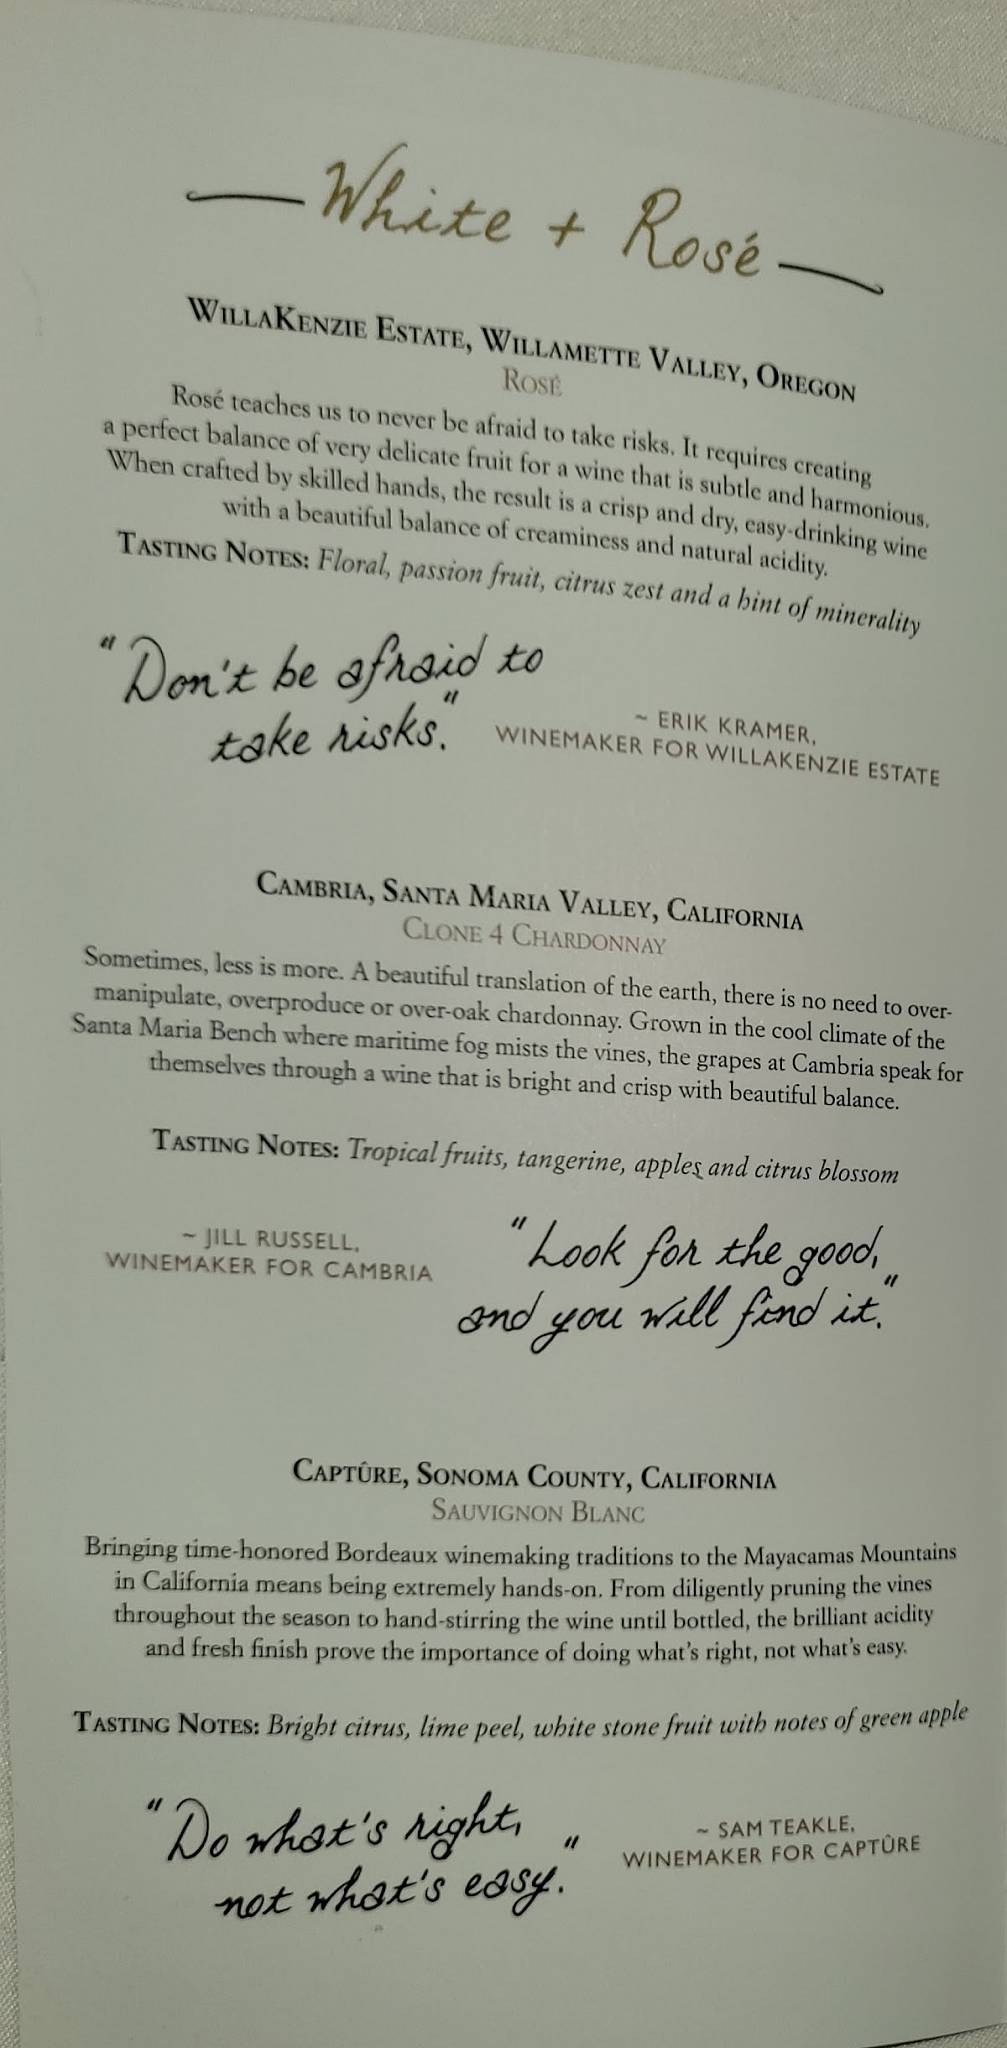 White + Rosé
WillaKenzie Estate, Willamette Valley, Oregon
Rosé
Rosé teaches us to never be afraid to take risks. It requires creating
a perfect balance of very delicate fruit for a wine that is subtle and harmonious.
When crafted by skilled hands, the result is a crisp and dry, easy-drinking wine
with a beautiful balance of creaminess and natural acidity.
Tasting Notes: Floral, passion fruit, citrus zest and a hint of minerality
"Don't be afraid to
take risks."
~ ERIK KRAMER,
WINEMAKER FOR WILLAKENZIE ESTATE
Cambria, Santa Maria Valley, California
Clone 4 Chardonnay
Sometimes, less is more. A beautiful translation of the earth, there is no need to over-
manipulate, overproduce or over-oak chardonnay. Grown in the cool climate of the
Santa Maria Bench where maritime fog mists the vines, the grapes at Cambria speak for
themselves through a wine that is bright and crisp with beautiful balance.
Tasting Notes: Tropical fruits, tangerine, apples and citrus blossom
~ JILL RUSSELL,
WINEMAKER FOR CAMBRIA
"Look for the good,
and you will find it."
Captûre, Sonoma County, California
Sauvignon Blanc
Bringing time-honored Bordeaux winemaking traditions to the Mayacamas Mountains
in California means being extremely hands-on. From diligently pruning the vines
throughout the season to hand-stirring the wine until bottled, the brilliant acidity
and fresh finish prove the importance of doing what's right, not what's easy.
Tasting Notes: Bright citrus, lime peel, white stone fruit with notes of green apple
"Do what's right,
not what's easy."
~ SAM TEAKLE,
WINEMAKER FOR CAPTÛRE